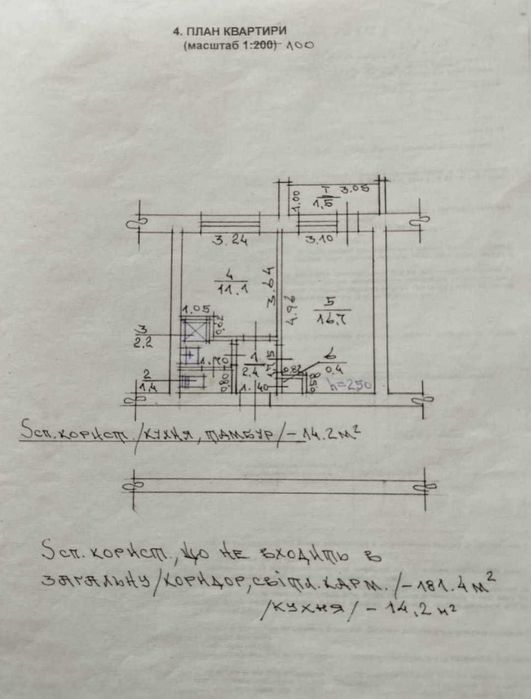 4. ПЛАН КВАРТИРИ
(масштаб 1:200) 100
1.00
Т 3.05
1,5
3.24
3.10
4
11.1
3.64
4.96
5
16.7
1.05
0,67
3
2.2
1.70
1
2.4
6
0,4
2
1,4
0,80
1.40
h=250
Sсп.корист. /кухня, тамбур/ - 14.2м²
Sсп.корист., що не входить в
загальну /коридор, світл.карм./ - 181.4м²
/кухня/ - 14,2м²